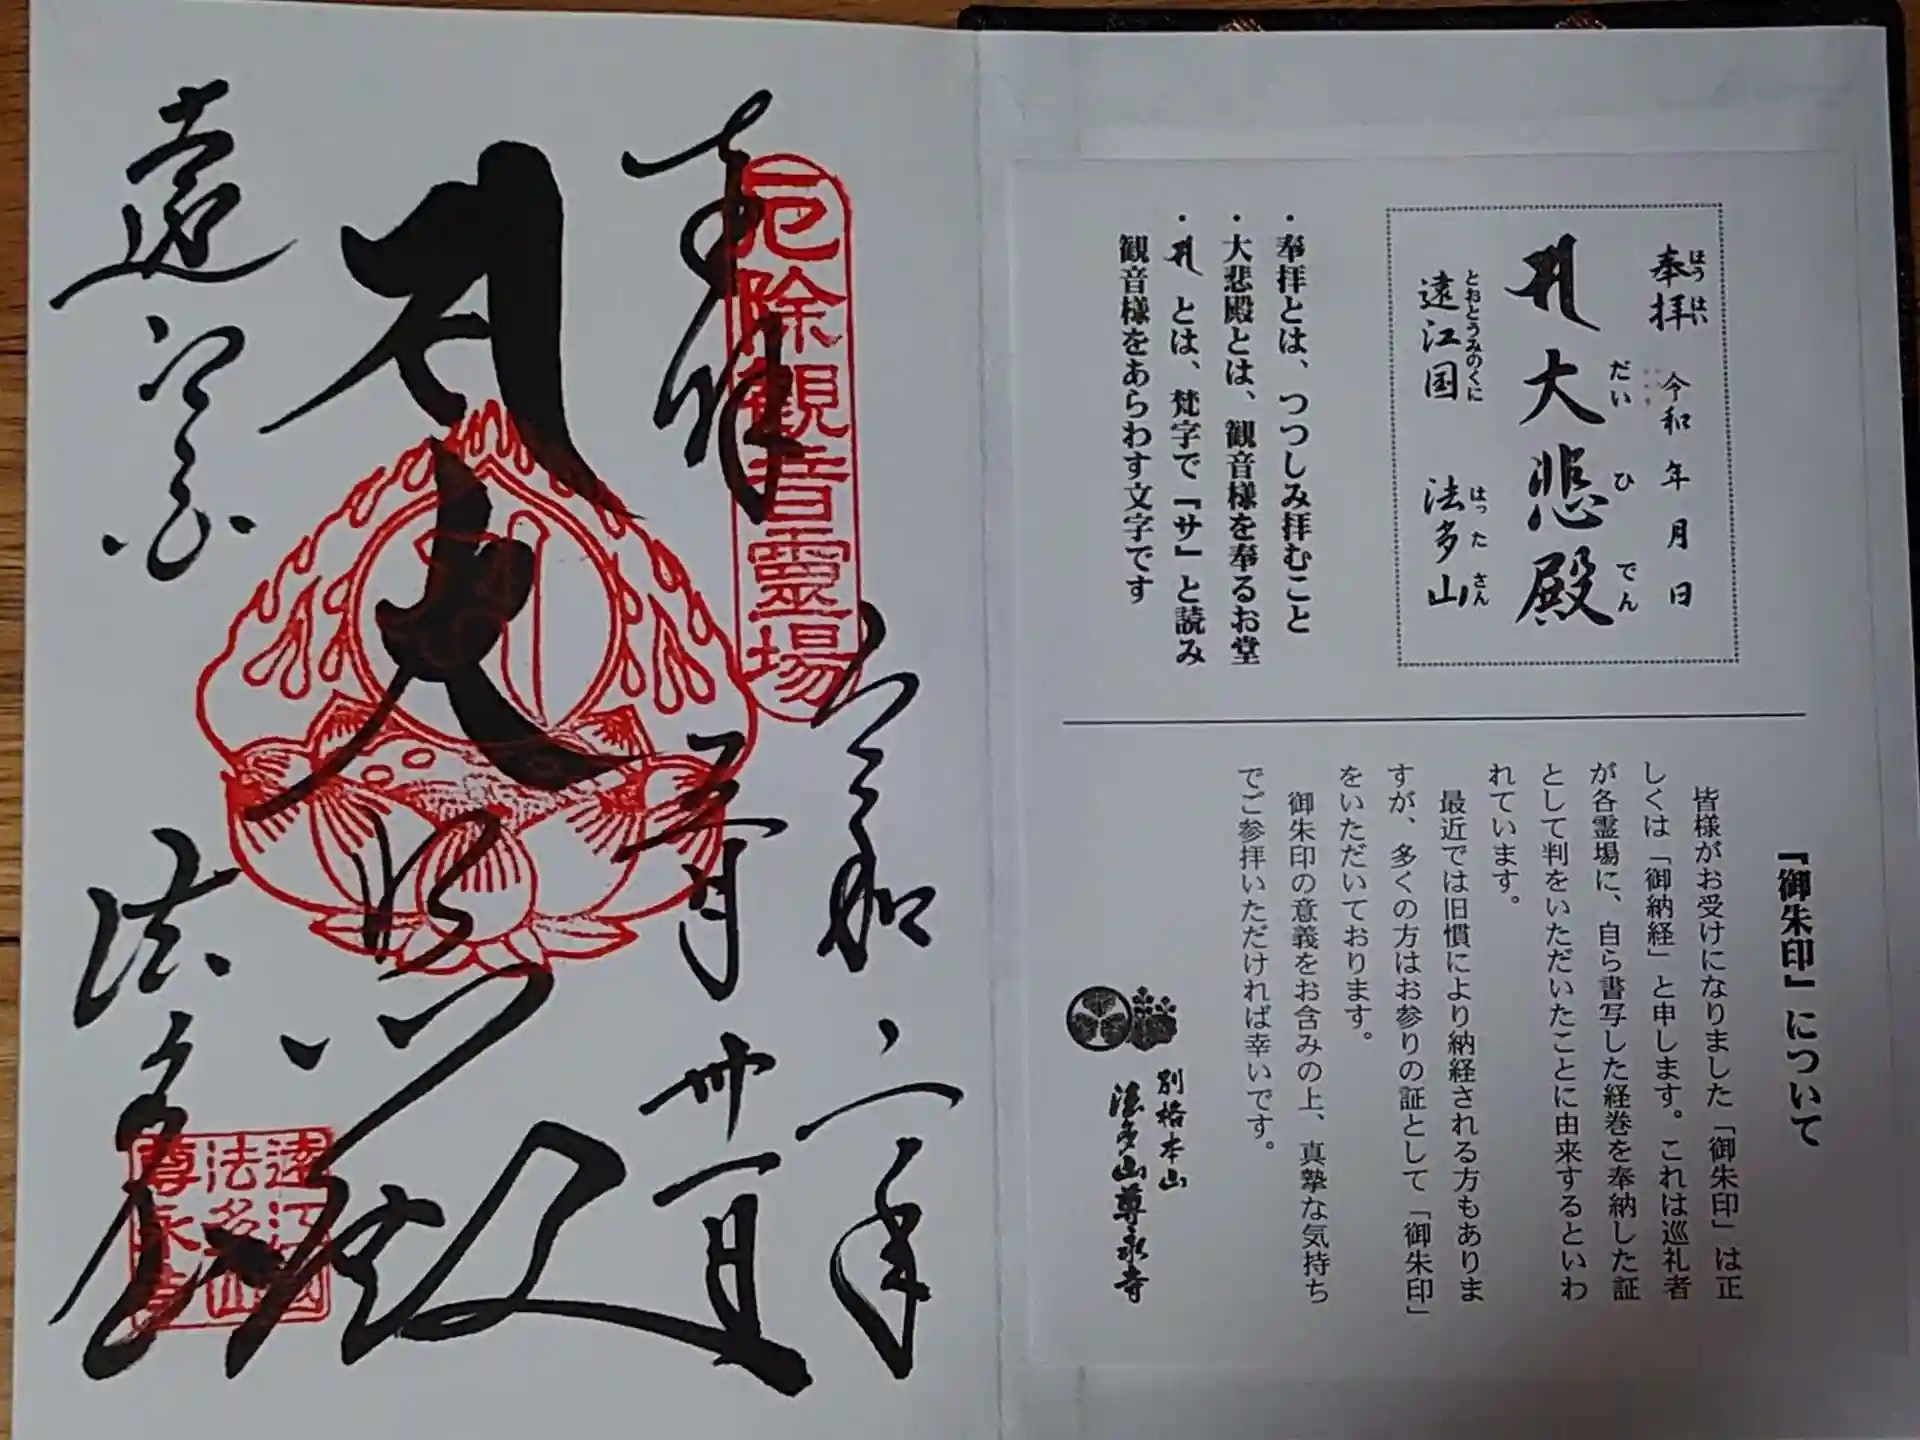 『御朱印』について
皆様がお受けになりました「御朱印」は正
しくは「御納経」と申します。これは巡礼者
が各霊場に、自ら書写した経巻を奉納した証
として判をいただいたことに由来するといわ
れています。
最近では旧慣により納経される方もありま
すが、多くの方はお参りの証として「御朱印」
をいただいております。
御朱印の意義をお含みの上、真摯な気持ち
でご参拝いただければ幸いです。
別格本山
法多山尊永寺
奉拝 令和 年 月 日
ほうはい
大悲殿
だいひでん
遠江国 法多山
とおとうみのくに はったさん
・奉拝とは、つつしみ拝むこと
・大悲殿とは、観音様を奉るお堂
・ とは、梵字で『サ』と読み
観音様をあらわす文字です
奉拝
厄除観音霊場
令和二年
月卅一日
大悲殿
遠江国
法多山
遠江国
法多山
尊永寺